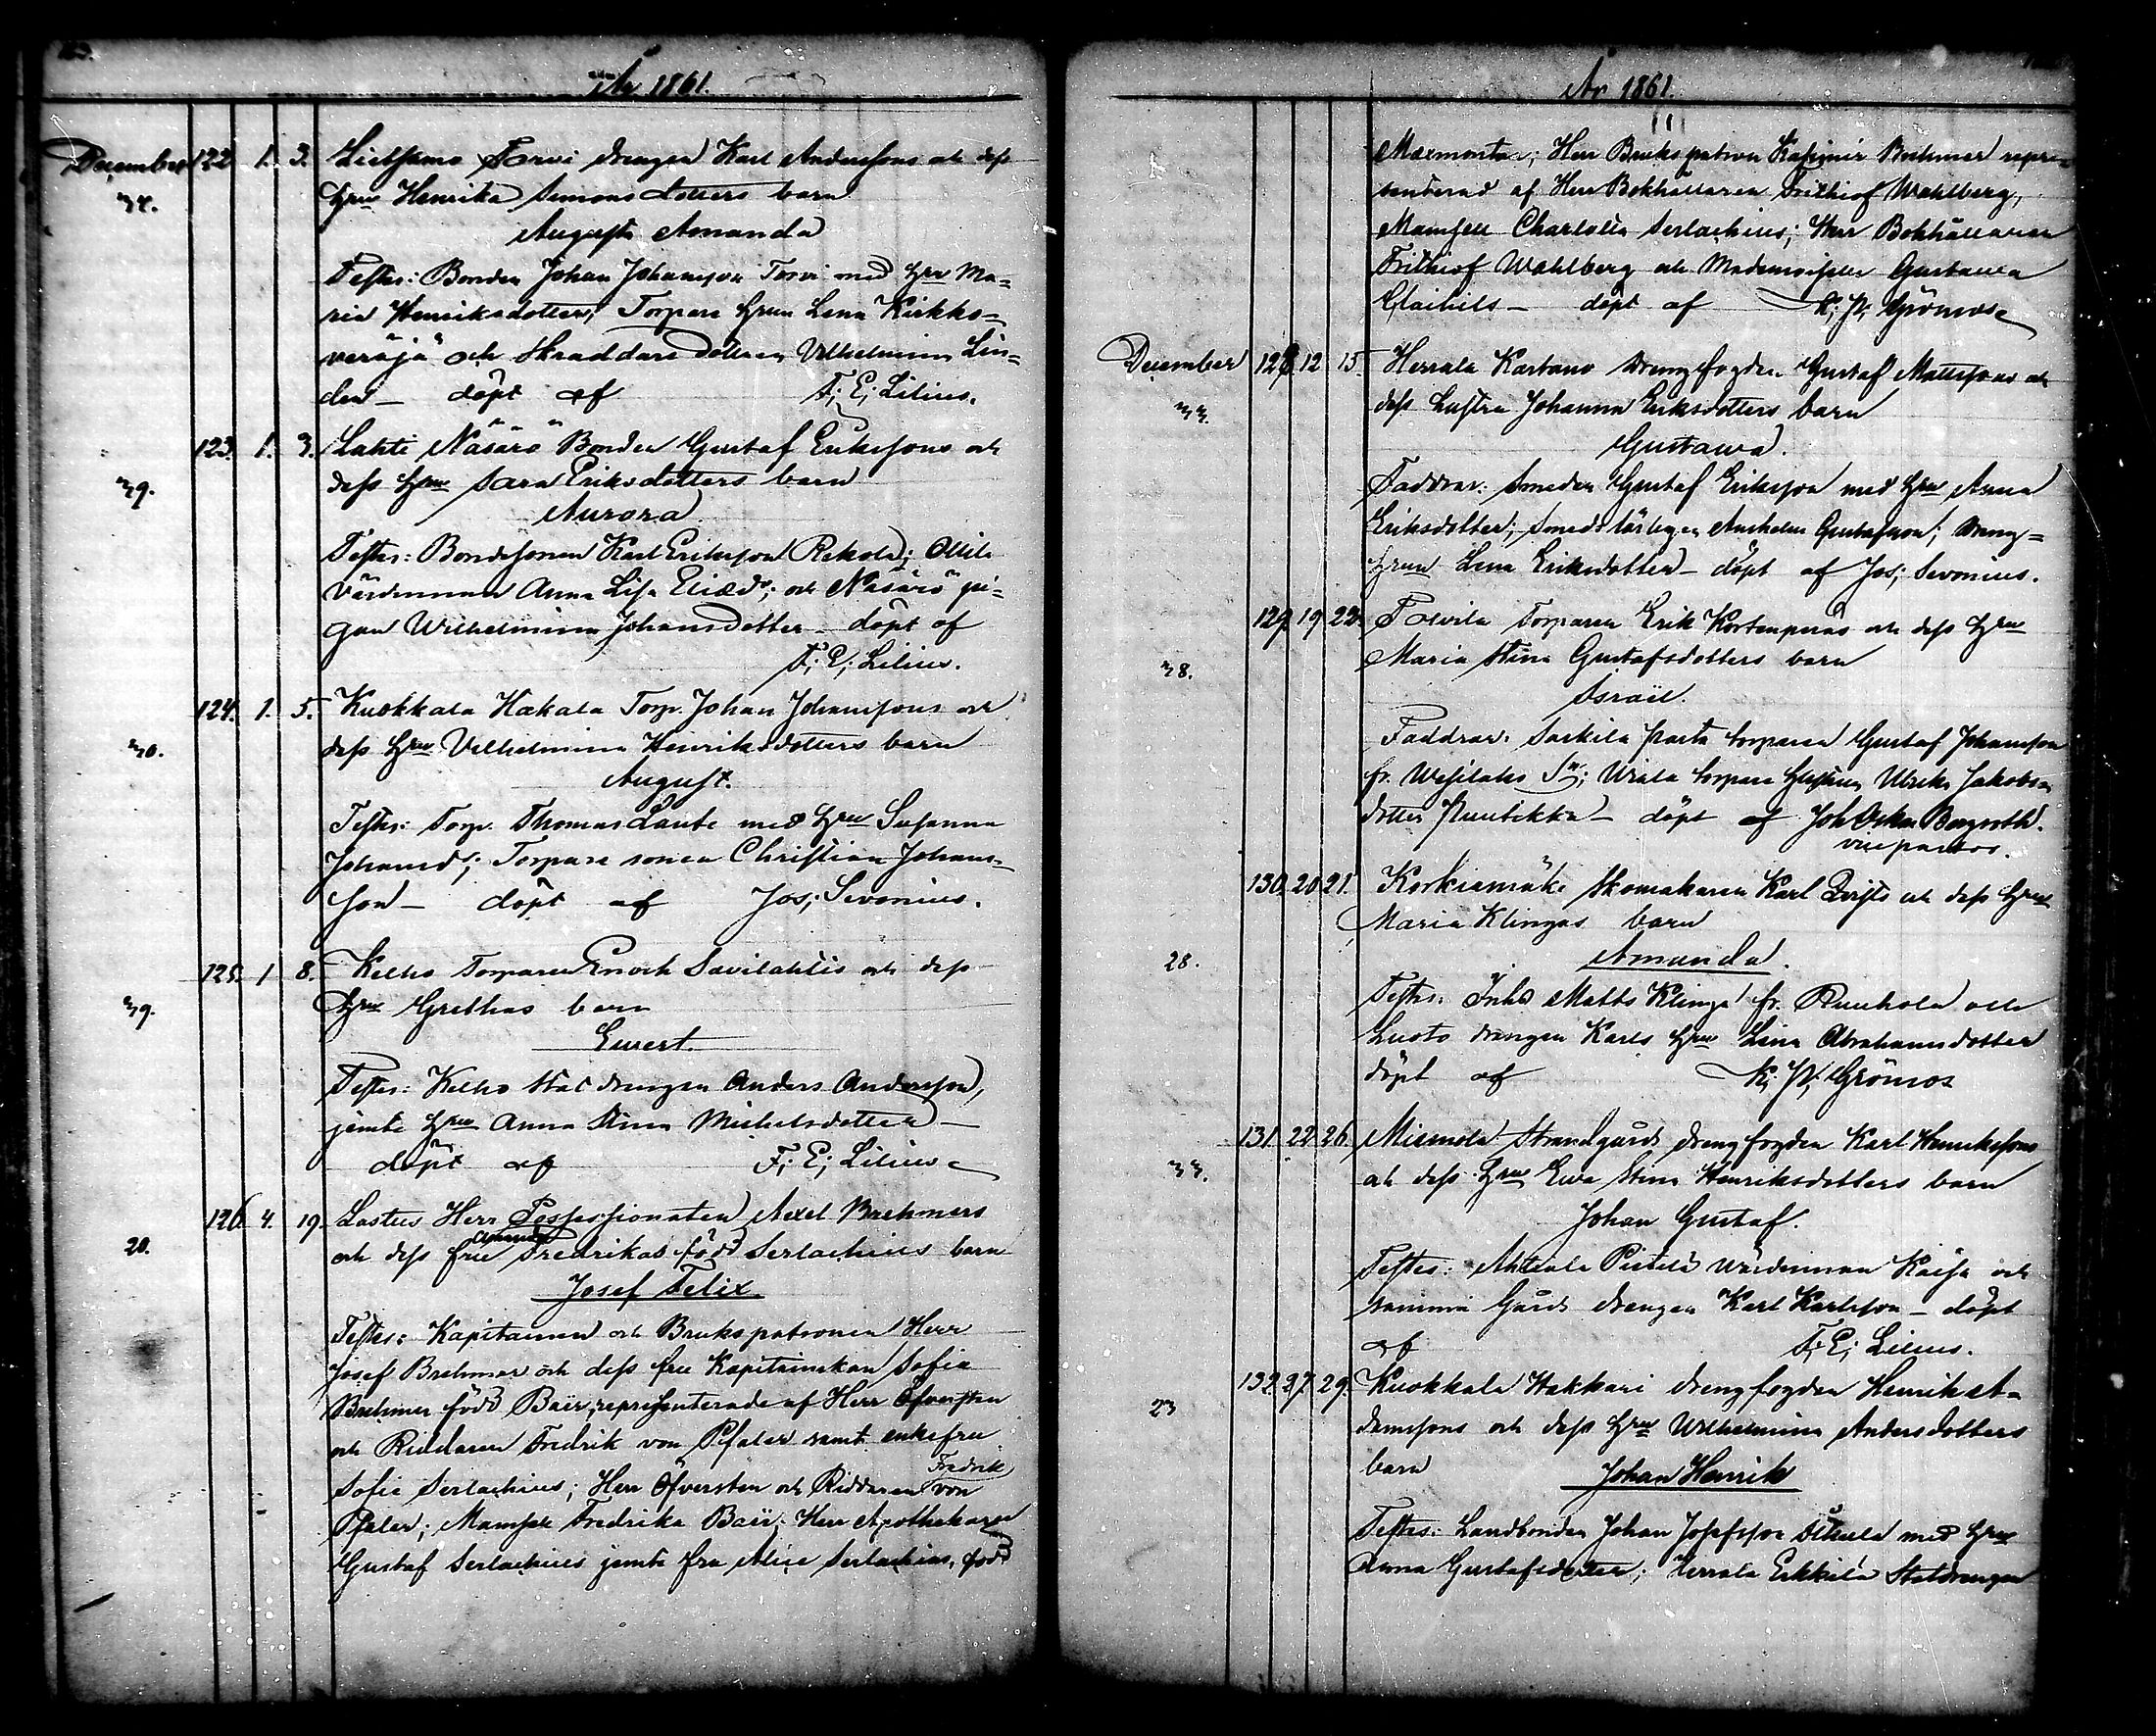 År 1861.
December 122 1. 3. Lietsamo Torvi drengen Karl Anderssons och dess
34. hru Henrika Simonsdotters barn
Augusta Amanda
Testes: Bonden Johan Johansson Torvi med hru Ma=
ria Henriksdotter; Torpare hrun Lena Kirkko=
veräjä och Skraddare dottren Vilhelmina Lin=
den — döpt af F; E; Lilius.
123. 1. 3. Lahti Näsärö Bonden Gustaf Erikssons och
39. dess hru Sara Eriksdotters barn
Aurora
Testes: Bondesonen Karl Eriksson Rekola; Ollila
Värdinnan Anna Lisa Eliæd; och Näsärö pi=
gan Wilhelmina Johansdotter — döpt af
F; E; Lilius.
124. 1. 5. Kuokkala Hakala Torp. Johan Johanssons och
30. dess hru Vilhelmina Henriksdotters barn
August.
Testes: Torp. Thomas Laute med hru Susanna
Johansd; Torpare sonen Christian Johans=
son — döpt af Jos; Sevonius.
125. 1 8. Kelho Torparen Enoch Savilahtis och dess
39. hru Grethas barn
Evert.
Testes: Kelho Stat drengen Anders Andersson,
jemte hru Anna Stina Michelsdotter —
döpt af F; E; Lilius
126. 4. 19. Lastus Herr Possessionaten Axel Brehmers
Amanda
20. och dess fru Fredrikas född Serlachius barn
Josef Felix
Testes: Kapitainen och Brukspatronen Herr
Josef Brehmer och dess fru Kapitainskan Sofia
Brehmer född Bair, representerade af Herr Öfversten
och Riddaren Fredrik von Pfaler samt enkefru
Fredrik
Sofia Serlachius; Herr Öfversten och Riddaren von
Pfaler; Mamsell Fredrika Bair; Herr Apothekaren
Gustaf Serlachius jemte fru Alice Serlachius, född
År 1861.
Maxmontan; Herr Brukspatron Kasimir Brehmer repre=
senterad af Herr Bokhållaren Frithiof Wahlberg,
Mamsell Charlotta Serlachius; Herr Bokhållaren
Frithiof Wahlberg och Mademoiselle Gustava
döpt af K; P; Grönroos
December 128 12 15. Herrala Kartano drengfogden Gustaf Mattssons och
33. dess hustru Johanna Eriksdotters barn
Gustawa.
Faddrar: Smeden Gustaf Eriksson med hru Anna
Eriksdotter; Smeds lärlingen Anshelm Gustafsson; dreng=
hrun Lena Eriksdotter — döpt af Jos; Sevonius.
129. 19 22. Torparen Erik Kortenperas och dess hru
38. Maria Stina Gustafsdotters barn
Israël.
Faddrar: Sarkila torparen Gustaf Johansson
fr. Wesilaks Sn; Uiala torpare hustrun Ulrika Jakobs=
dotter — döpt af Joh Oskar Bergroth.
vicepastor.
130. 20. 21. Korkiamäki Skomakaren Karl Qvists och dess hru
Maria Klingas barn
28. Amanda.
Testes: Inhs Matts Klinga fr. Ruuhola och
Luoto drengen Karls hru Lena Abrahamsdotter
döpt af K; P; Grönroos
131. 22. 26. Miemola Strandgårds drengfogden Karl Henrikssons
33. och dess hru Eva Stina Henriksdotters barn
Johan Gustaf.
Testes: Ahtiala Pietilä Wärdinnan Kaisa och
samma Gårds drengen Karl Karlsson — döpt
af F; E; Lilius.
132. 27. 29. Kuokkala Hakkari drengfogden Henrik A=
23 damssons och dess hru Wilhelmina Andersdotters
barn Johan Henrik
Testes: Landbonden Johan Josefsson med hru
Anna Gustafsdotter; Herrala Erkkilä Statdrengen